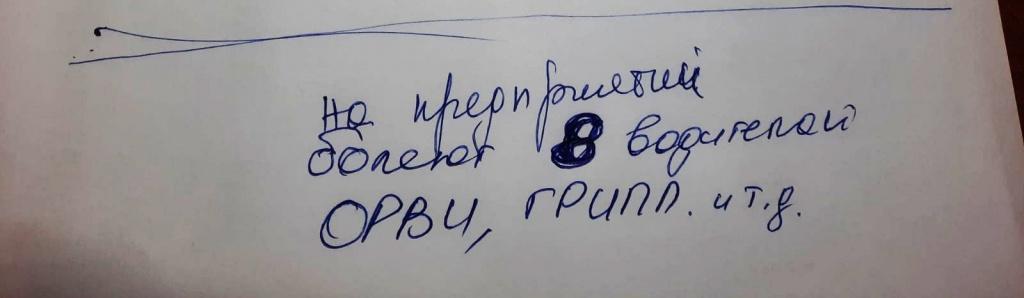 на предприятий
болеют 8 водителей
ОРВИ, ГРИПП. и т.д.